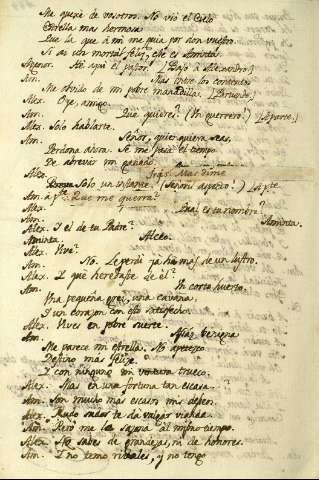 Me quexé de vosotros. No vió el Cielo
Estrella mas hermosa
Que la que á mi me guia por don vuestro.
Si ai un mortal feliz, este es Aminta.
Agenor. He aqui el pastor. (Bajo á Alexandro.)
Am. Mas entre los contentos
Me olvido de mi pobre manadilla. (Partiendo.)
Alex. Oye, amigo.
Am. Qué quieres? (Un guerrero!) (Aparte.)
Alex. Solo hablarte.
Am. Señor, quien quiera seas,
Perdona ahora. Se me pasa el tiempo
De abrevar mi ganado.
Alex. Irás. Mas dime
Solo un instante. (Señoril aspecto!) (Apte.
Am. apte. Que me querrá?
Alex. Cual es tu nombre?
Am. Aminta.
Alex. I el de tu Padre?
Aminta. Alceo.
Alex. Vive?
Am. No. Le perdí ya há mas de un lustro.
Alex. I que heredaste de él?
Am. Un corto huerto,
Una pequeña grei, una cavaña,
I un corazon con esto satisfecho.
Alex. Vives en pobre suerte.
Am. Asaz benigna
Me parece mi estrella. No apetezco
Destino más feliz.
I con ninguno mi ventura trueco.
Alex. Mas en una fortuna tan escasa
Am. Son mucho mas escasos mis deseos.
Alex. Rudo sudas te da vulgar vianda.
Am. Pero me la sazona al mismo tiempo.
Alex. No sabes de grandezas, ni de honores.
Am. I no temo rivales, y no tengo